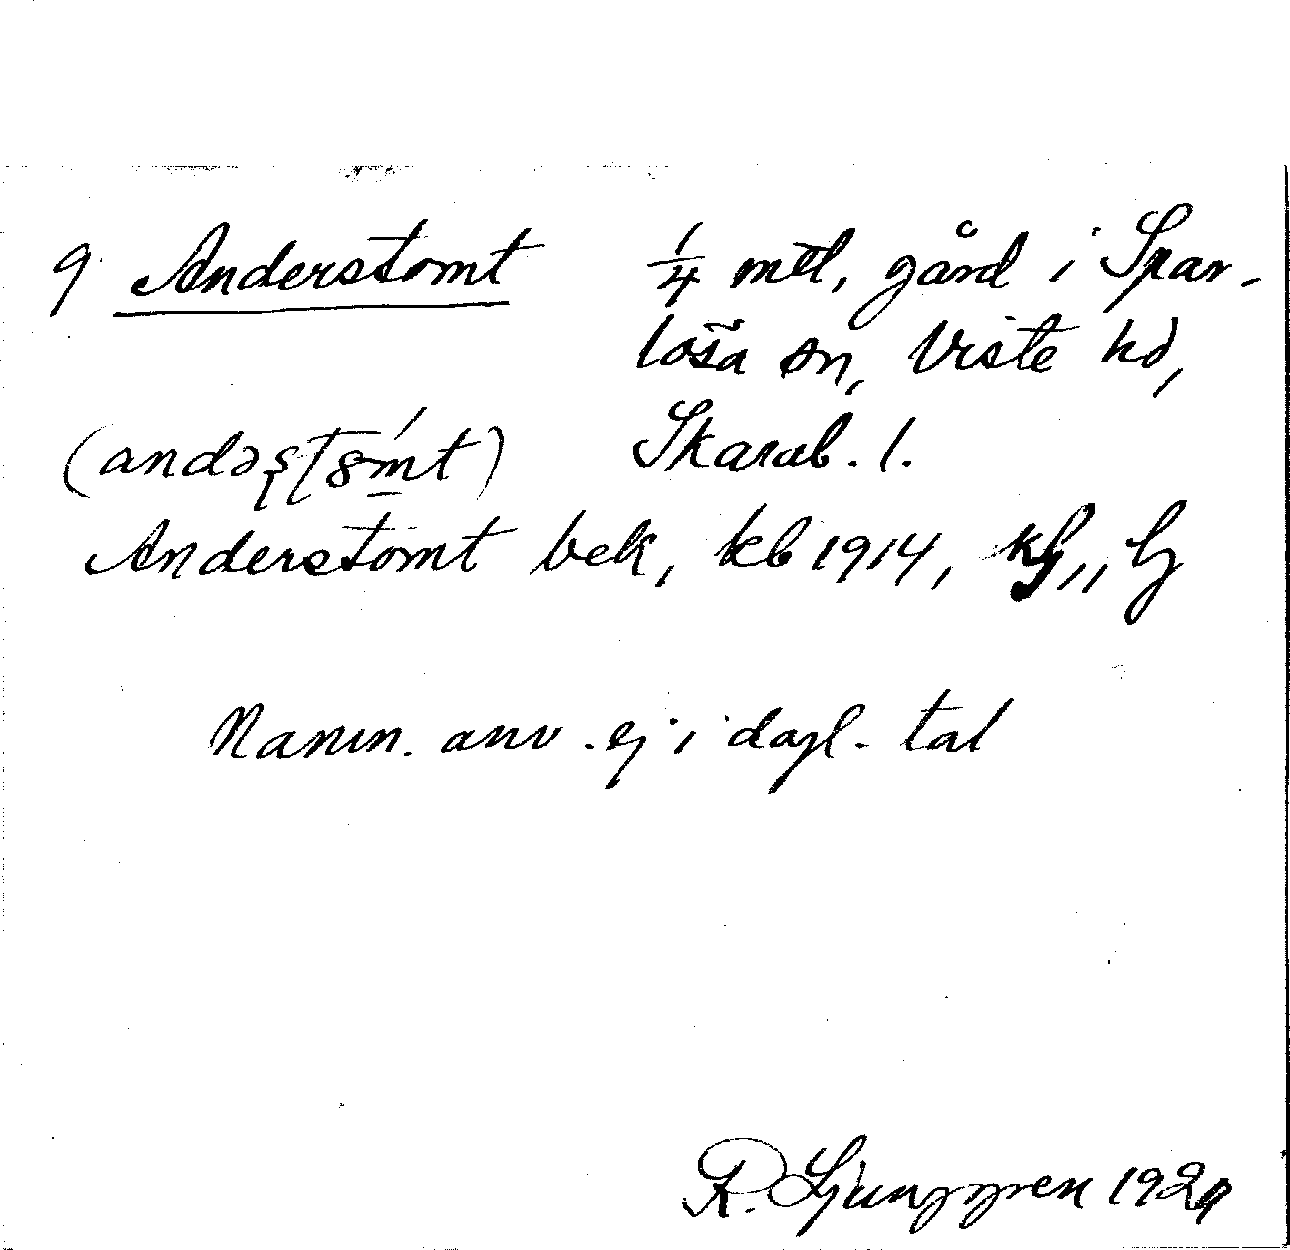 9 Anderstomt 1/4 mtl, gård i Spar-
lösa sn, Viste hd,
Skarab. l.
Anderstomt bek, kb 1914,
Namn. anv. ej i dagl. tal
R. Ljunggren 1929